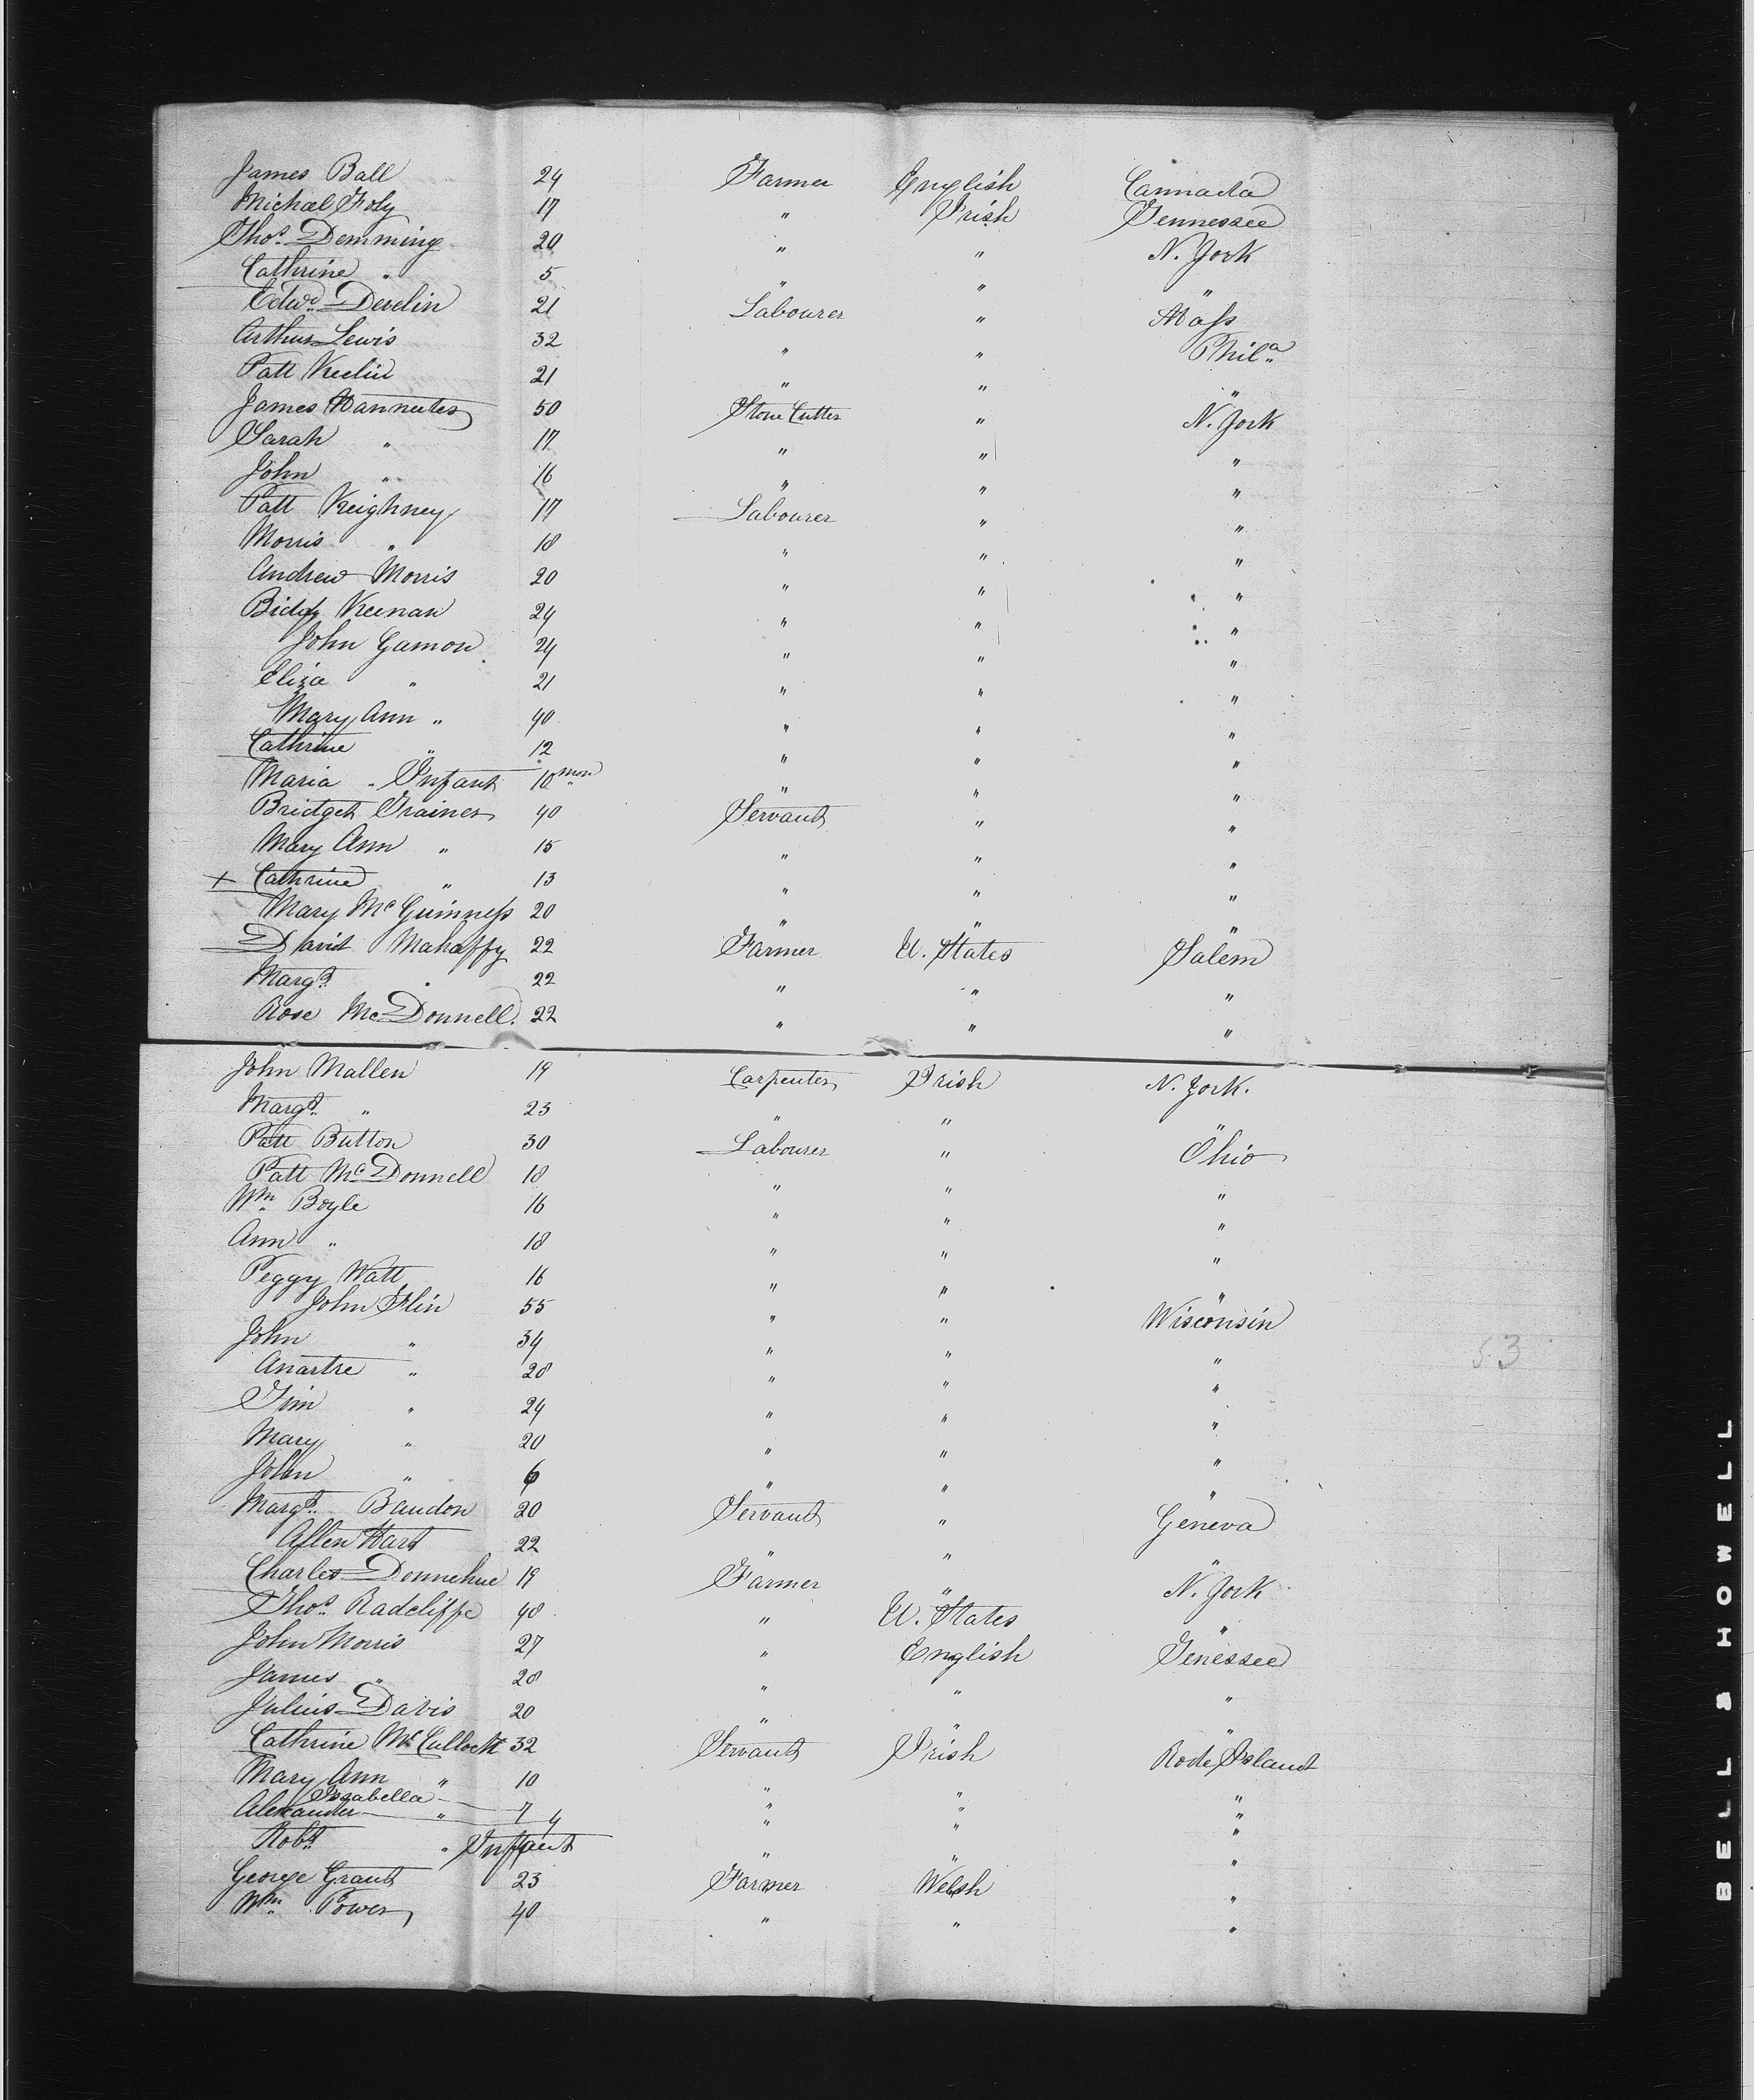 James Ball 24 Farmer English Cannada
Michael Foly 17 " Irish Tennessee
Thos. Demming 20 " " N. York
Cathrine " 5 " " "
Edwd. Develin 21 Labourer " Mass
Arthur Lewis 32 " " Phila.
Patt Keelin 21 " " "
James 50 Stone Cutter " N. York
Sarah " 17 " " "
John " 16 " " "
Patt Keighney 17 Labourer " "
Morris " 18 " " "
Andrew Morris 20 " " "
Biddy Keenan 24 " " "
John Gamon 24 " " "
Eliza " 21 " " "
Mary Ann " 40 " " "
Cathrine " 12 " " "
Maria " Infant 10 mon " " "
Bridget Grainer 40 Servant " "
Mary Ann " 15 " " "
+ Cathrine " 13 " " "
Mary McGuinness 20 " " "
David Mahaffy 22 Farmer U. States Salem
Margt. " 22 " " "
Rose McDonnell 22 " " "
John Mallen 19 Carpenter Irish N. York.
Margt. " 23 " " "
Patt Button 30 Labourer " Ohio
Patt McDonnell 18 " " "
Wm. Boyle 16 " " "
Ann " 18 " " "
Peggy Watt 16 " " "
John Flin 55 " " Wisconsin
John " 34 " " "
Anartre " 28 " " "
Tim " 24 " " "
Mary " 20 " " "
John " 6 " " "
Margt. Bandon 20 Servant " Geneva
Allen Hart 22 " " "
Charles Donnehue 19 Farmer " N. York
Thos. Radcliffe 48 " U. States "
John Morris 27 " English Tenessee
James " 28 " " "
Julius Davis 20 " " "
Cathrine McCullock 32 Servant Irish Rode Island
Mary Ann " 10 " " "
Issabella
Alexander " 7 4 " " "
Robt. " Infant " " "
George Grant 23 Farmer Welsh "
Wm. Power 40 " " "
53
BELL & HOWELL